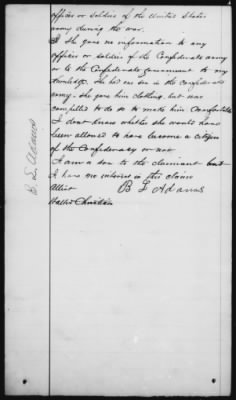 officer or soldier of the United States
army during the war.
She gave no information to any
officer or soldier of the Confederate army
or to the Confederate government to my
knowledge. She had one son in the Confederate
army. She gave him clothing, but was
compelled to do so to make him comfortable
I dont know whether she would have
been allowed to have become a citizen
of the Confederacy or not
I am a son to the claimant but
I have no interest in this claim
Attest B L Adams
B. L. Adams